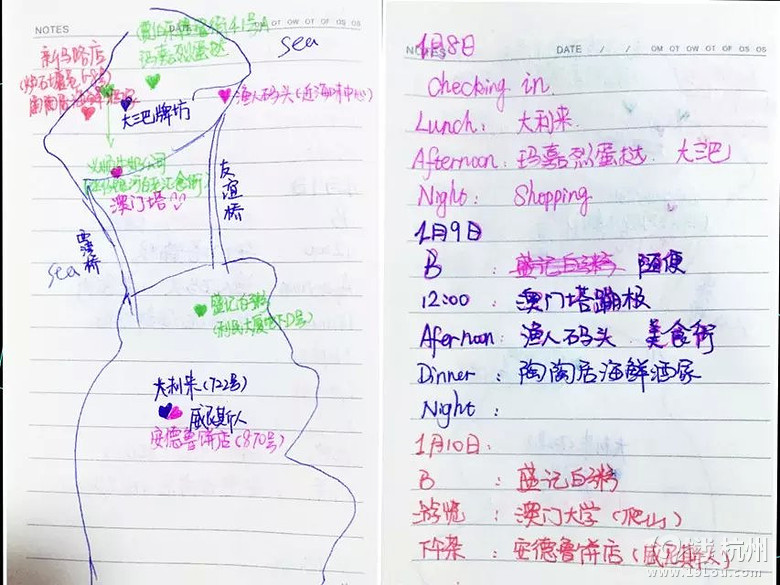 NOTES
DATE
OT OW OT OF OS OS
41号A
玛嘉烈蛋挞
sea
新马路店
渔人码头(近海味中心)
大三巴牌坊
澳门塔
友谊桥
西湾桥
sea
盛记白粥
大利来(722号)
威尼斯人
安德鲁饼店(870号)
NOTES
DATE / / OM OT OW OT OF OS OS
1月8日
Checking in
Lunch: 大利来.
Afternoon: 玛嘉烈蛋挞. 大三巴
Night: Shopping
1月9日
B : 盛记白粥 随便
12:00 : 澳门塔蹦极
Afernoon: 渔人码头. 美食街
Dinner : 陶陶居海鲜酒家
Night :
1月10日:
B : 盛记白粥
游览 : 澳门大学(爬山)
下午茶 : 安德鲁饼店(威尼斯人)
杭州
www.19lou.com